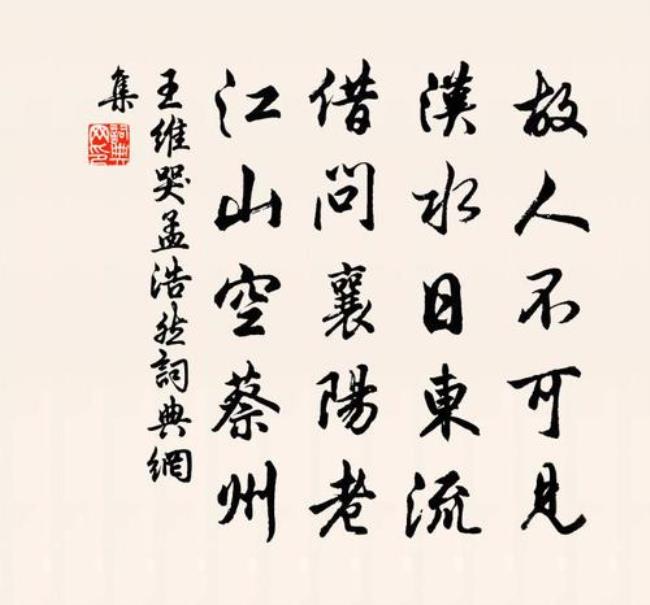 故人不可見
漢水日東流
借問襄陽老
江山空蔡州
王維哭孟浩然詞典網
集
詞典網印